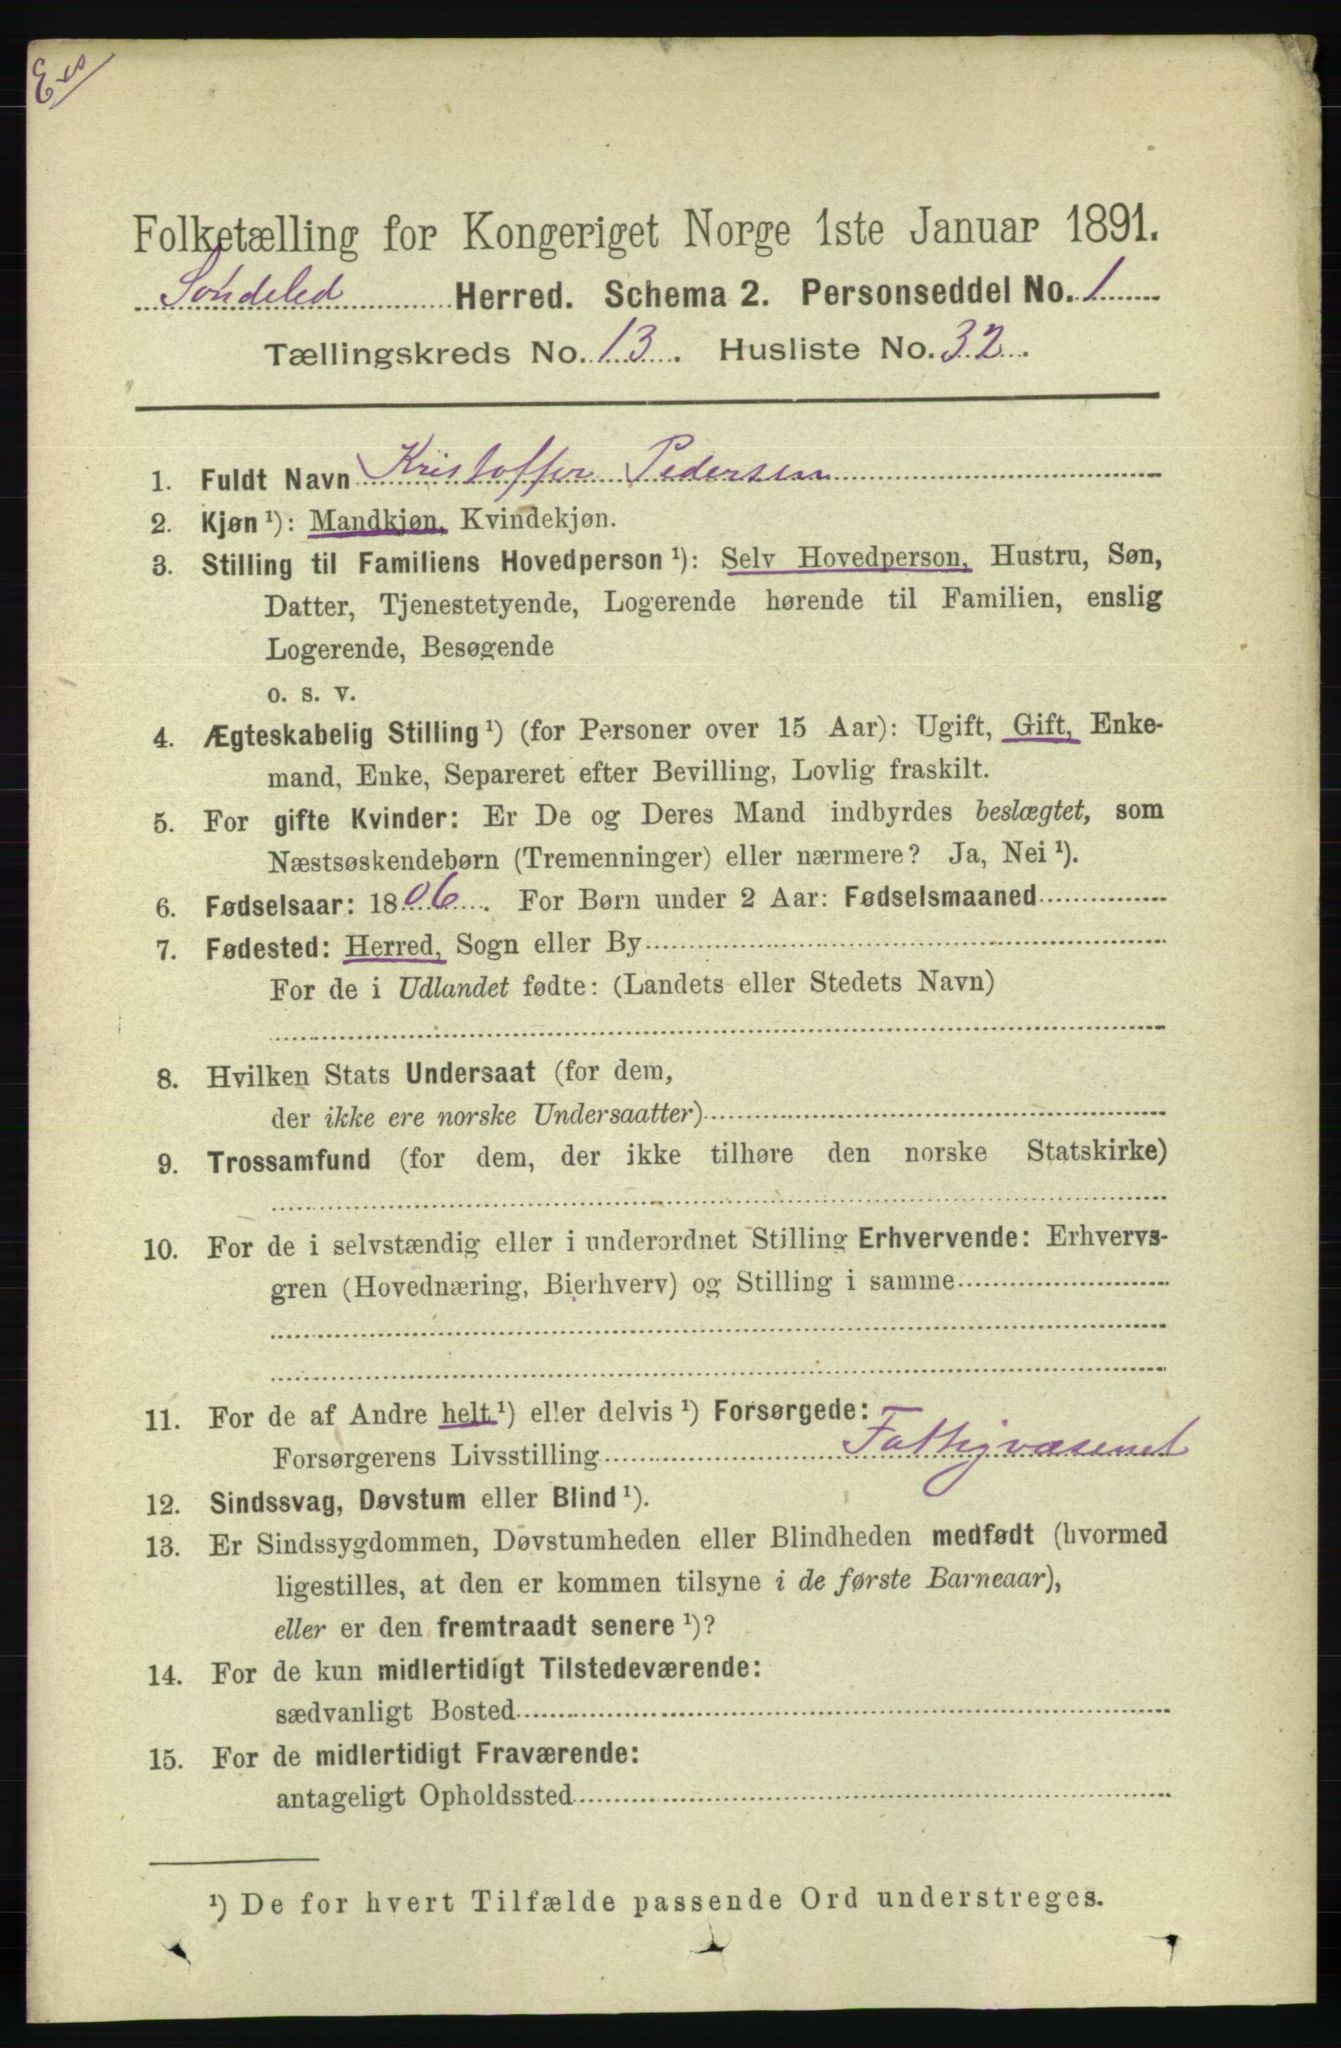 Exs
Folketælling for Kongeriget Norge 1ste Januar 1891.
Søndeled Herred. Schema 2. Personseddel No. 1
Tællingskreds No. 13. Husliste No. 32.
1. Fuldt Navn Kristoffer Pedersen
2. Kjøn ¹): Mandkjøn, Kvindekjøn.
3. Stilling til Familiens Hovedperson ¹): Selv Hovedperson, Hustru, Søn,
Datter, Tjenestetyende, Logerende hørende til Familien, enslig
Logerende, Besøgende
o. s. v.
4. Ægteskabelig Stilling ¹) (for Personer over 15 Aar): Ugift, Gift, Enke-
mand, Enke, Separeret efter Bevilling, Lovlig fraskilt.
5. For gifte Kvinder: Er De og Deres Mand indbyrdes beslægtet, som
Næstsøskendebørn (Tremenninger) eller nærmere? Ja, Nei ¹).
6. Fødselsaar: 1806. For Børn under 2 Aar: Fødselsmaaned
7. Fødested: Herred, Sogn eller By
For de i Udlandet fødte: (Landets eller Stedets Navn)
8. Hvilken Stats Undersaat (for dem,
der ikke ere norske Undersaatter)
9. Trossamfund (for dem, der ikke tilhøre den norske Statskirke)
10. For de i selvstændig eller i underordnet Stilling Erhvervende: Erhvervs-
gren (Hovednæring, Bierhverv) og Stilling i samme
11. For de af Andre helt ¹) eller delvis ¹) Forsørgede:
Forsørgerens Livsstilling Fattigvæsenet
12. Sindssvag, Døvstum eller Blind ¹).
13. Er Sindssygdommen, Døvstumheden eller Blindheden medfødt (hvormed
ligestilles, at den er kommen tilsyne i de første Barneaar),
eller er den fremtraadt senere ¹)?
14. For de kun midlertidigt Tilstedeværende:
sædvanligt Bosted
15. For de midlertidigt Fraværende:
antageligt Opholdssted
¹) De for hvert Tilfælde passende Ord understreges.